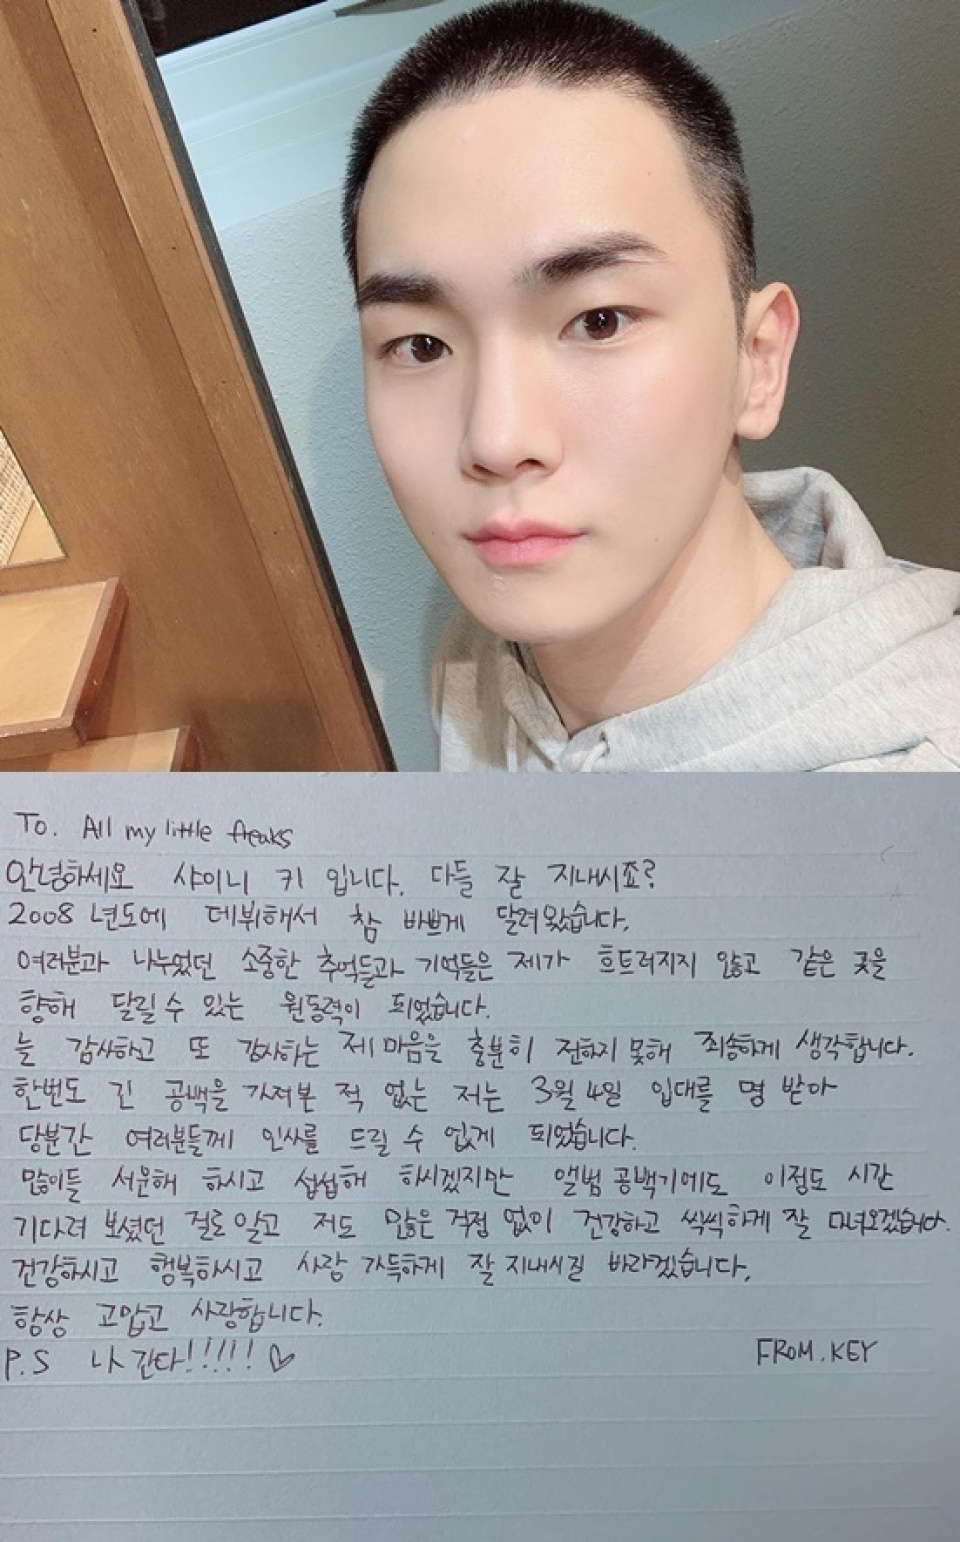 To. All my little freaks
안녕하세요 샤이니 키 입니다. 다들 잘 지내시죠?
2008 년도에 데뷔해서 참 바쁘게 달려왔습니다.
여러분과 나누었던 소중한 추억들과 기억들은 제가 흐트러지지 않고 같은 곳을
향해 달릴 수 있는 원동력이 되었습니다.
늘 감사하고 또 감사하는 제 마음을 충분히 전하지 못해 죄송하게 생각합니다.
한번도 긴 공백을 가져본 적 없는 저는 3월 4일 입대를 명 받아
당분간 여러분들께 인사를 드릴 수 없게 되었습니다.
많이들 서운해 하시고 섭섭해 하시겠지만 앨범 공백기에도 이정도 시간
기다려 보셨던 걸로 알고 저도 많은 걱정 없이 건강하고 씩씩하게 잘 다녀오겠습니다.
건강하시고 행복하시고 사랑 가득하게 잘 지내시길 바라겠습니다.
항상 고맙고 사랑합니다.
P.S 나 간다!!!!!! ♡ FROM.KEY